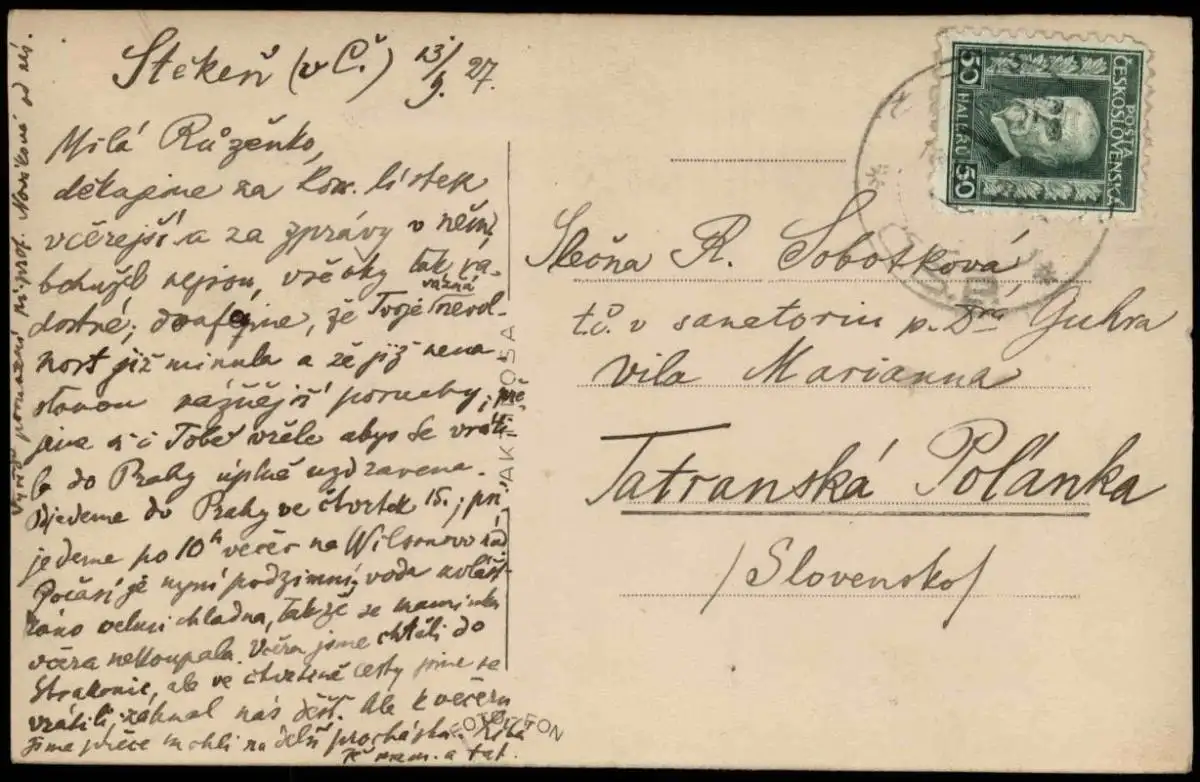 Štěkeň (v Č.) 13/9. 27.
Milá Růženko,
děkujeme za kor. lístek
včerejší a za zprávy v něm,
bohužel nejsou, vždycky tak ra-
dostné; doufejme, že Tvoje vážná nevol-
nost již minula a že již nena-
stanou vážnější poruchy; pře-
jeme si i Tobě vřele abys se vráti-
la do Prahy úplně uzdravena.
Pojedeme do Prahy ve čtvrtek 15.; při-
jedeme po 10h večer na Wilsonovo nád
Počasí je nyní podzimní, voda zvlášt
ráno velmi chladna, takže se maminka
včera nekoupala. Včera jsme chtěli do
Strakonic, ale ve čtvrtině cesty jsme se
vrátili; zahnal nás déšť. Ale k večeru
jsme přece mohli na delší procházku. Líbá
Tě mam. a tat.
Vyřiď poručení pí. prof. Novákové od nás.
AKROSA
FOTOFON
POŠTA
ČESKOSLOVENSKÁ
50 HALÉŘŮ 50
Slečna R. Sobotková
t.č. v sanatoriu p. Dra Guhra
vila Marianna
Tatranská Poľanka
/Slovensko/